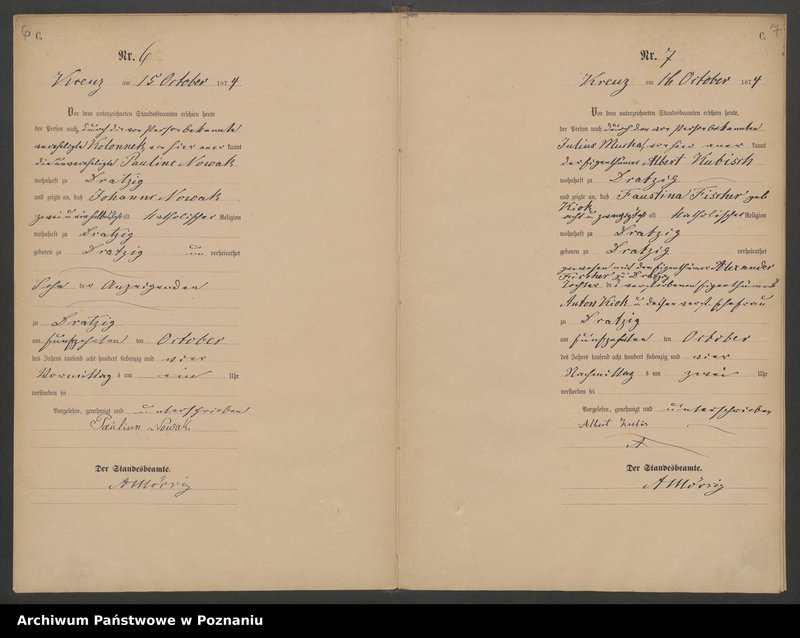 6 C.
Nr. 6
Kreuz am 15 October 1874
Vor dem unterzeichneten Standesbeamten erschien heute
der Person nach, durch die von Person bekannte
verehelichte Kolonnek, von hier aner kannt
die unverehelichte Pauline Nowak
wohnhaft zu Dratzig
und zeigte an, daß Johann Nowak
zwei u ein halb Jahr alt katholischer Religion
wohnhaft zu Dratzig
geboren zu Dratzig un verheirathet
Sohn der Anzeigenden
zu Dratzig
am fünfzehnten ten October
des Jahrs tausend acht hundert siebenzig und vier
Vormittag s um ein Uhr
verstorben sei
Vorgelesen, genehmigt und unterschrieben
Paulinn Nowak.
Der Standesbeamte.
A Mörsig
C. 7
Nr. 7
Kreuz am 16 October 1874
Vor dem unterzeichneten Standesbeamten erschien heute,
der Person nach durch den von Person bekannten
Julius von hier aner kannt
der Eigenthümer Albert Kubisch
wohnhaft zu Dratzig
und zeigte an, daß Faustina Fischer geb
Kiok
acht u zwanzig Jahr alt katholischer Religion
wohnhaft zu Dratzig
geboren zu Dratzig verheirathet
gewesen mit dem Eigenthümer Alexander
Fischer zu Dratzig
Tochter des verstorbenen Eigenthümers
Anton Kiok u dessen verst. Ehefrau
zu Dratzig
am fünfzehnten ten October
des Jahrs tausend acht hundert siebenzig und vier
Nachmittag s um zwei Uhr
verstorben sei
Vorgelesen, genehmigt und unterschrieben
Albert
Der Standesbeamte.
A Mörsig
Archiwum Państwowe w Poznaniu